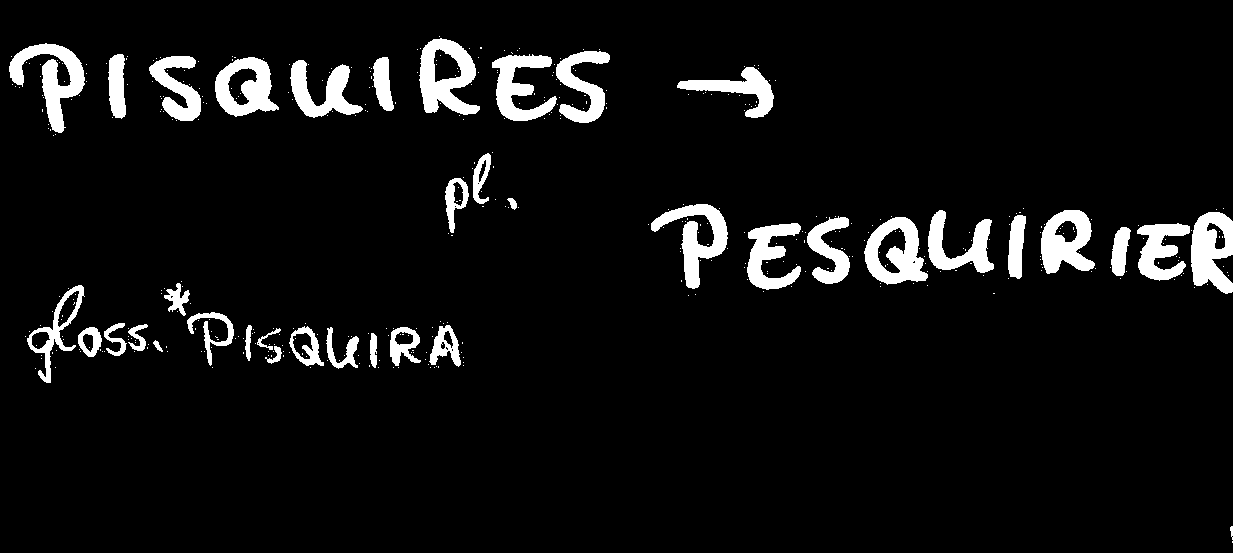 PISQUIRES →
pl.
PESQUIRIER
gloss. *PISQUIRA